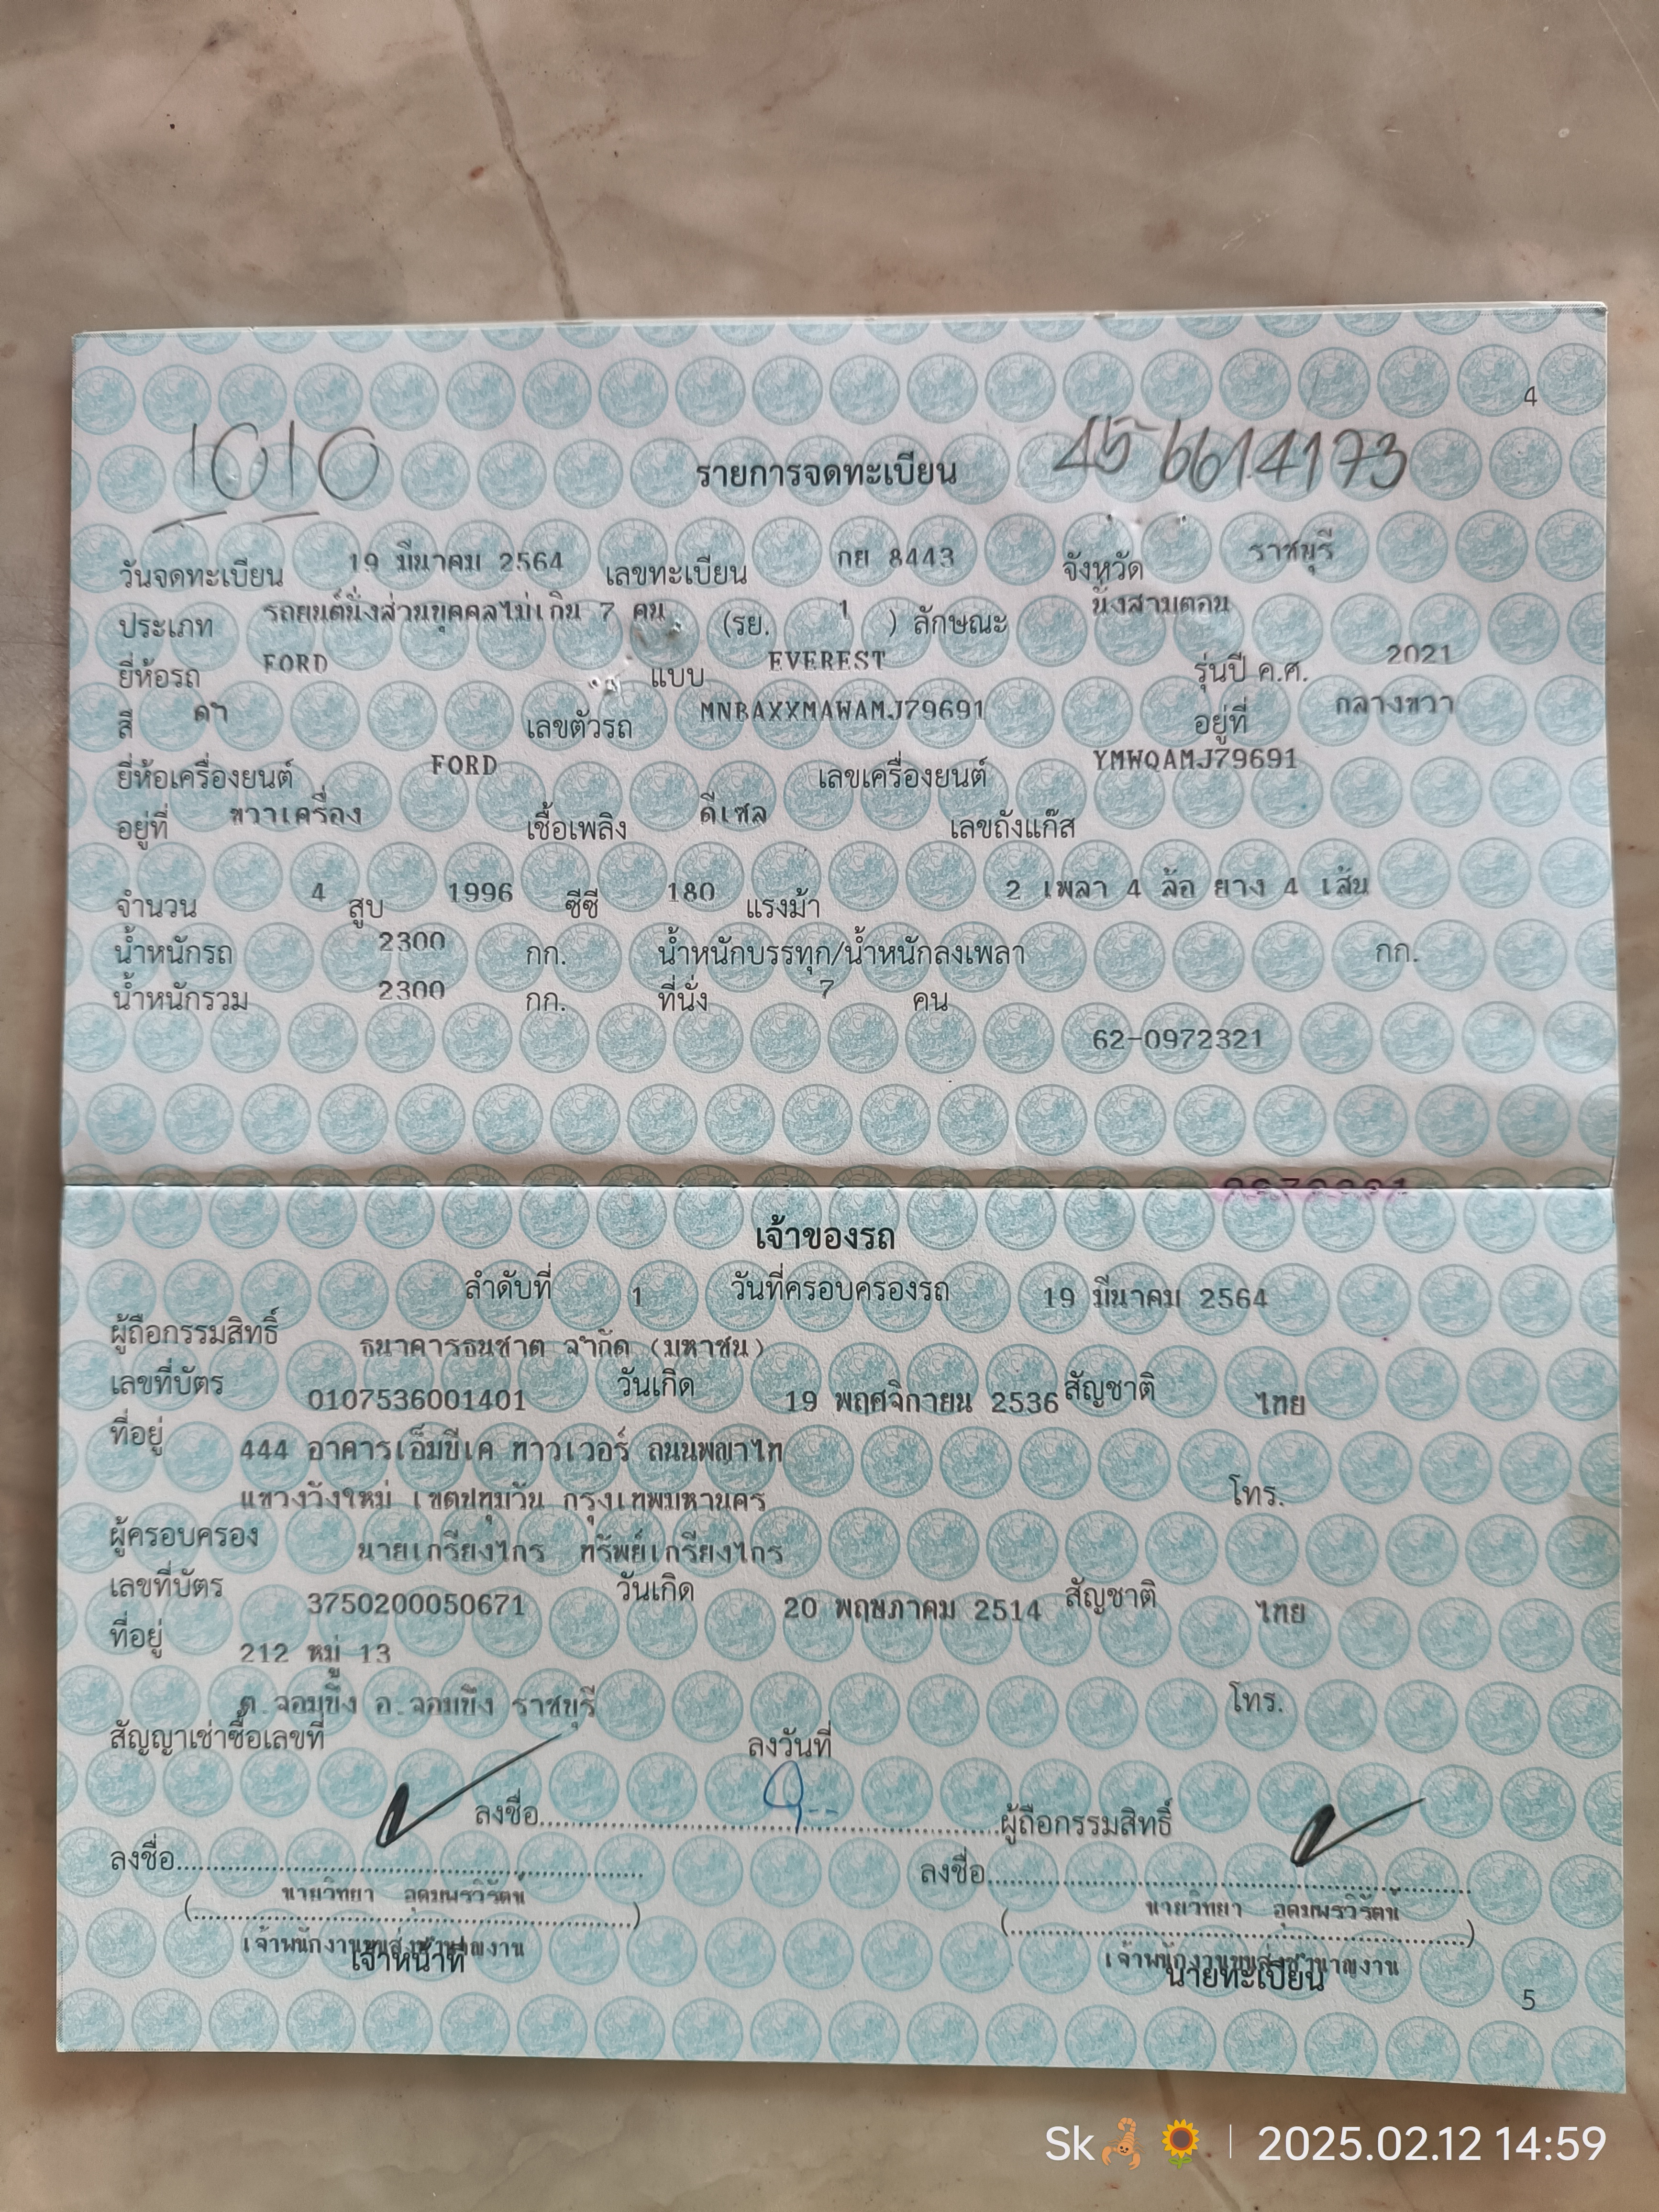 4
1010 รายการจดทะเบียน 456614173
วันจดทะเบียน 19 มีนาคม 2564 เลขทะเบียน กย 8443 จังหวัด ราชบุรี
ประเภท รถยนต์นั่งส่วนบุคคลไม่เกิน 7 คน (รย. 1 ) ลักษณะ นั่งสามตอน
ยี่ห้อรถ FORD แบบ EVEREST รุ่นปี ค.ศ. 2021
สี ดำ เลขตัวรถ MNBAXXMAWAMJ79691 อยู่ที่ กลางขวา
ยี่ห้อเครื่องยนต์ FORD เลขเครื่องยนต์ YMWQAMJ79691
อยู่ที่ ขวาเครื่อง เชื้อเพลิง ดีเซล เลขถังแก๊ส
จำนวน 4 สูบ 1996 ซีซี 180 แรงม้า 2 เพลา 4 ล้อ ยาง 4 เส้น
น้ำหนักรถ 2300 กก. น้ำหนักบรรทุก/น้ำหนักลงเพลา กก.
น้ำหนักรวม 2300 กก. ที่นั่ง 7 คน
62-0972321
เจ้าของรถ
ลำดับที่ 1 วันที่ครอบครองรถ 19 มีนาคม 2564
ผู้ถือกรรมสิทธิ์ ธนาคารธนชาต จำกัด (มหาชน)
เลขที่บัตร 0107536001401 วันเกิด 19 พฤศจิกายน 2536 สัญชาติ ไทย
ที่อยู่ 444 อาคารเอ็มบีเค ทาวเวอร์ ถนนพญาไท
แขวงวังใหม่ เขตปทุมวัน กรุงเทพมหานคร โทร.
ผู้ครอบครอง นายเกรียงไกร ทรัพย์เกรียงไกร
เลขที่บัตร 3750200050671 วันเกิด 20 พฤษภาคม 2514 สัญชาติ ไทย
ที่อยู่ 212 หมู่ 13
ต.จอมบึง อ.จอมบึง ราชบุรี โทร.
สัญญาเช่าซื้อเลขที่ ลงวันที่
ลงชื่อ ผู้ถือกรรมสิทธิ์
ลงชื่อ ลงชื่อ
(นายวิทยา อุดมพรวิรัตน์) (นายวิทยา อุดมพรวิรัตน์)
เจ้าพนักงานขนส่งชำนาญงาน เจ้าพนักงานขนส่งชำนาญงาน
เจ้าหน้าที่ นายทะเบียน
5
Sk🦂🌻 | 2025.02.12 14:59